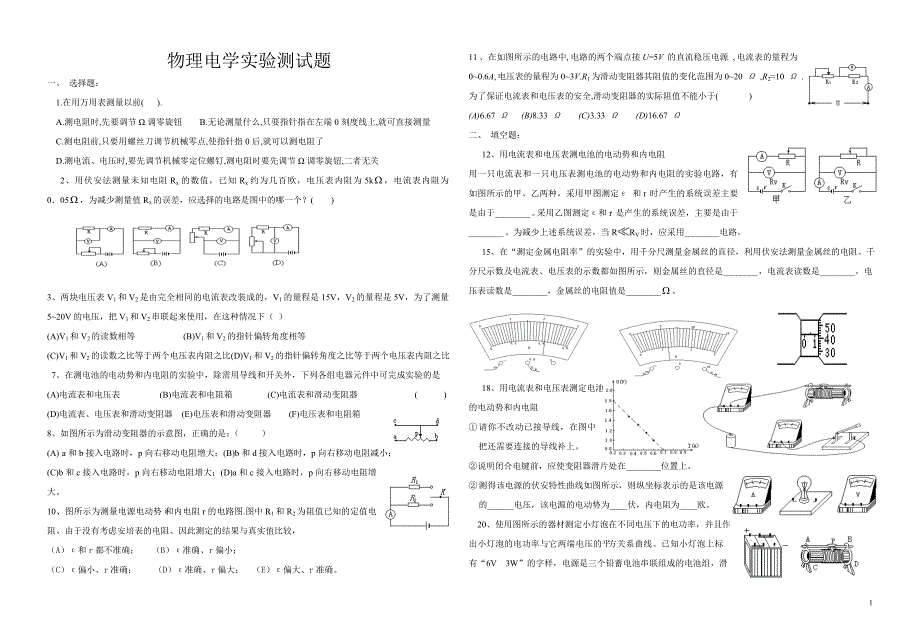 物理电学实验测试题
一、 选择题:
1.在用万用表测量以前( ).
A.测电阻时,先要调节Ω调零旋钮 B.无论测量什么,只要指针指在左端0刻度线上,就可直接测量
C.测电阻前,只要用螺丝刀调节机械零点,使指针指0后,就可以测电阻了
D.测电流、电压时,要先调节机械零定位螺钉,测电阻时要先调节Ω调零旋钮,二者无关
2、用伏安法测量未知电阻Rx的数值，已知Rx约为几百欧，电压表内阻为5kΩ，电流表内阻为
0．05Ω，为减少测量值Rx的误差，应选择的电路是图中的哪一个？( )
(A) (B) (C) (D)
3、两块电压表V1和V2是由完全相同的电流表改装成的，V1的量程是15V，V2的量程是5V，为了测量
5~20V的电压，把V1和V2串联起来使用，在这种情况下（ ）
(A)V1和V2的读数相等 (B)V1和V2的指针偏转角度相等
(C)V1和V2的读数之比等于两个电压表内阻之比(D)V1和V2的指针偏转角度之比等于两个电压表内阻之比
7、在测电池的电动势和内电阻的实验中，除需用导线和开关外，下列各组电器元件中可完成实验的是
(A)电流表和电压表 (B)电流表和电阻箱 (C)电流表和滑动变阻器 ( )
(D)电流表、电压表和滑动变阻器 (E)电压表和滑动变阻器 (F)电压表和电阻箱
8、如图所示为滑动变阻器的示意图，正确的是:（ ）
(A) a和b接入电路时，p向右移动电阻增大；(B)b和d接入电路时，p向右移动电阻减小；
(C)b和c接入电路时，p向右移动电阻增大；(D)a和c接入电路时，p向右移动电阻增
大。
10、图所示为测量电源电动势和内电阻r的电路图.图中R1和R2为阻值已知的定值电
阻、由于没有考虑安培表的电阻、因此测的结果与真实值比较,
（A）ε和r都不准确； （B）ε准确、r偏小；
（C）ε偏小、r准确； （D）ε准确、r偏大； （E）ε偏大、r准确。
R1
R2
K
A
11、在如图所示的电路中,电路的两个端点接U=5V的直流稳压电源,电流表的量程为
0~0.6A,电压表的量程为0~3V.R1为滑动变阻器其阻值的变化范围为0~20 Ω,R2=10 Ω.
为了保证电流表和电压表的安全,滑动变阻器的实际阻值不能小于( )
(A)6.67 Ω (B)8.33 Ω (C)3.33 Ω (D)16.67 Ω
R1 R2
U
二、 填空题:
12、用电流表和电压表测电池的电动势和内电阻
用一只电流表和一只电压表测电池的电动势和内电阻的实验电路，有
如图所示的甲、乙两种，采用甲图测定ε和r时产生的系统误差主要
是由于________.采用乙图测定ε和r是产生的系统误差，主要是由于
________。为减少上述系统误差，当R≪RV时，应采用________电路。
甲 乙
15、在“测定金属电阻率”的实验中，用千分尺测量金属丝的直径，利用伏安法测量金属丝的电阻。千
分尺示数及电流表、电压表的示数都如图所示，则金属丝的直径是________，电流表读数是________，电
压表读数是________，金属丝的电阻值是________Ω。
0 1
50
40
30
18、用电流表和电压表测定电池
的电动势和内电阻
①请你不改动已接导线，在图中
把还需要连接的导线补上。
②说明闭合电键前，应使变阻器滑片处在________位置上。
②测得该电源的伏安特性曲线如图所示，则纵坐标表示的是该电源
的______电压，该电源的电动势为____伏，内电阻为____欧。
20、使用图所示的器材测定小灯泡在不同电压下的电功率，并且作
出小灯泡的电功率与它两端电压的平方关系曲线。已知小灯泡上标
有“6V 3W”的字样，电源是三个铅蓄电池串联组成的电池组，滑
A V
A P B
C D
1